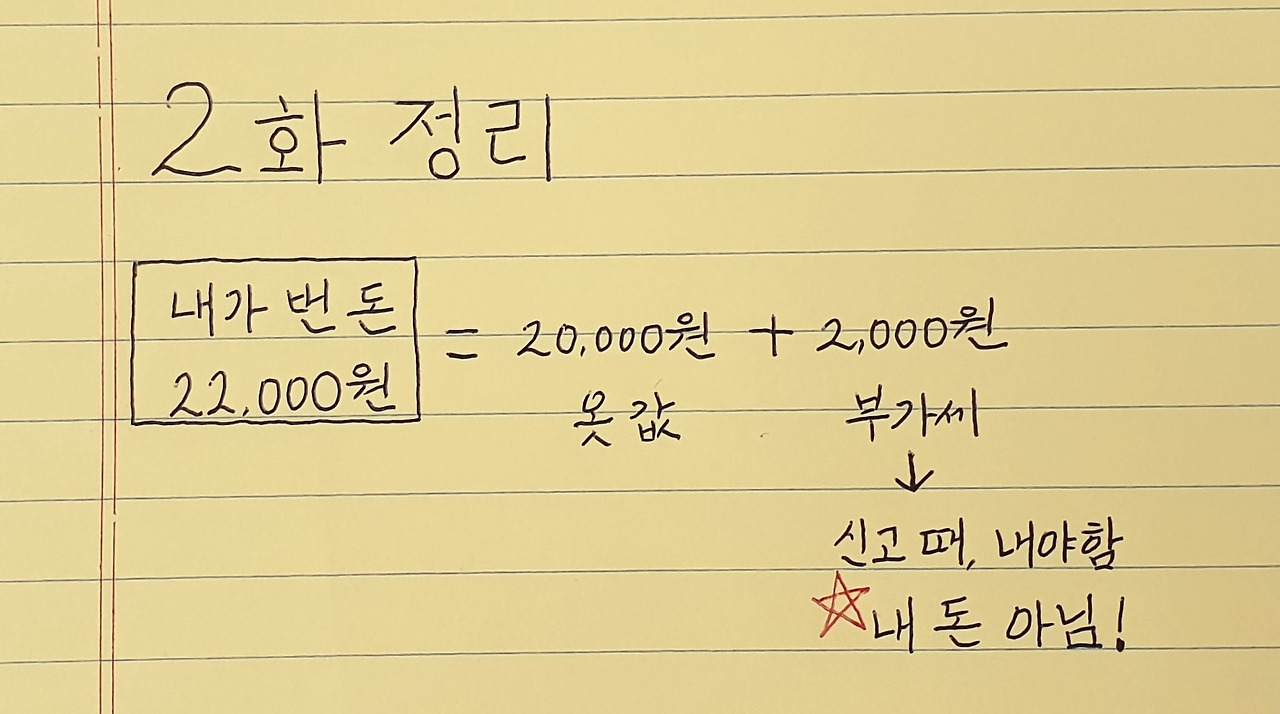 2화 정리
내가 번 돈
22,000원 = 20,000원 + 2,000원
옷 값 부가세
↓
신고 때, 내야함
☆내 돈 아님!